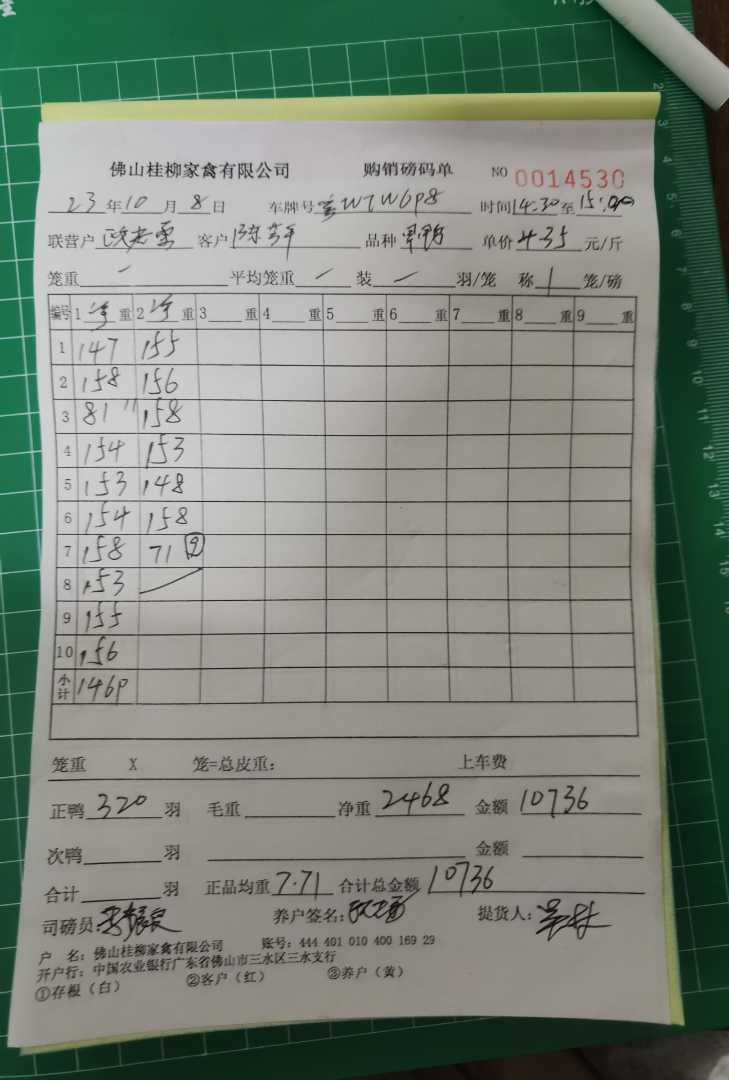 佛山桂柳家禽有限公司 购销磅码单 NO 0014530
23年10月8日 车牌号 W7W6P8 时间14:30至15:00
联营户 客户 陈 品种 单价4.35元/斤
笼重 一 平均笼重 一 装 一 羽/笼 称 1 笼/磅
编号 1 重 2 重 3 重 4 重 5 重 6 重 7 重 8 重 9 重
1 147 155
2 158 156
3 81 11 158
4 154 153
5 153 148
6 154 158
7 158 71 ②
8 153
9 155
10 156
小计 1469
笼重 X 笼=总皮重: 上车费
正鸭 320 羽 毛重 净重 2468 金额 10736
次鸭 羽 金额
合计 羽 正品均重 7.71 合计总金额 10736
司磅员: 养户签名: 提货人:
户 名: 佛山桂柳家禽有限公司 账号: 444 401 010 400 169 29
开户行: 中国农业银行广东省佛山市三水区三水支行
①存根（白） ②客户（红） ③养户（黄）
2
3
4
5
6
7
8
9
10
11
12
13
14
15